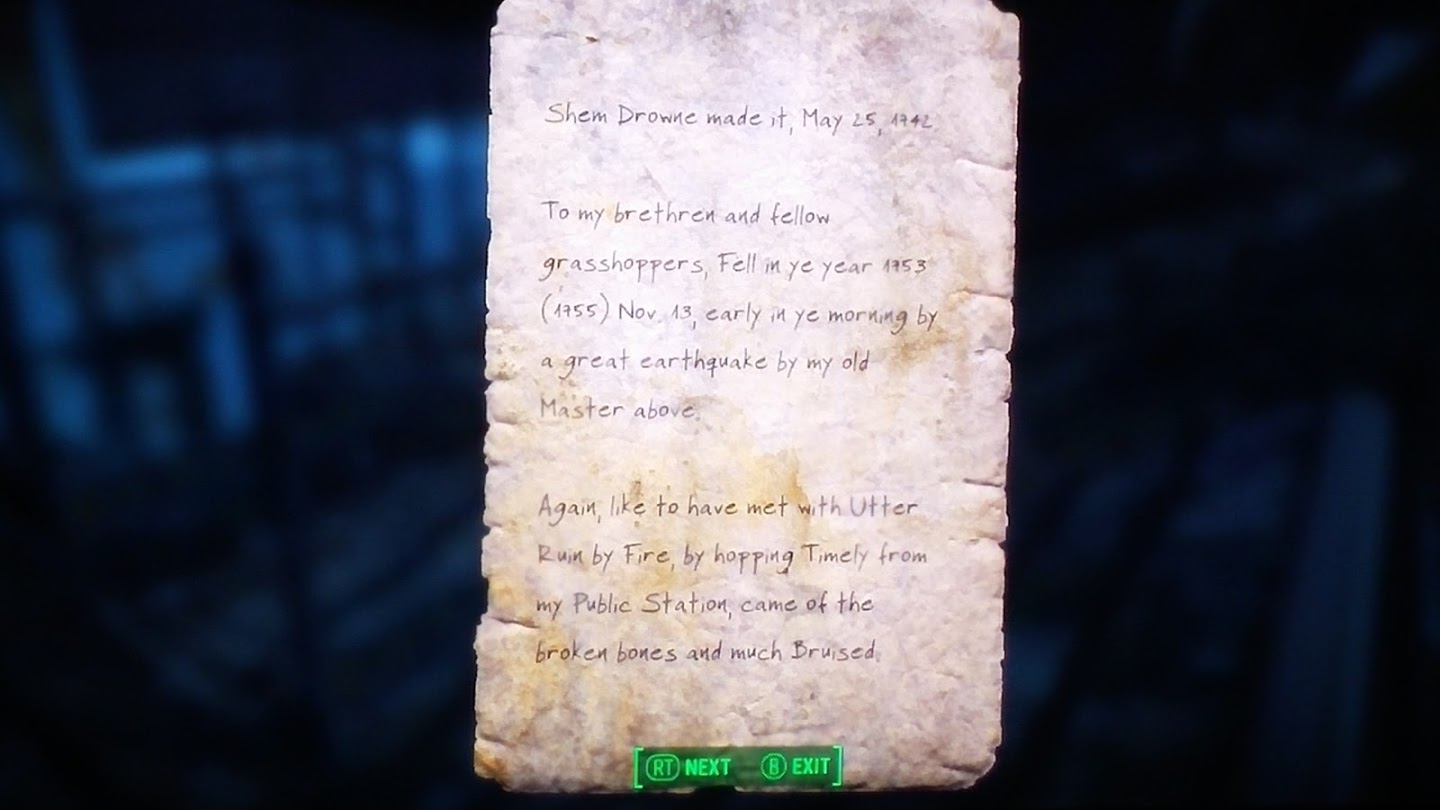 Shem Drowne made it, May 25, 1742.
To my brethren and fellow
grasshoppers, Fell in ye year 1753
(1755) Nov. 13, early in ye morning by
a great earthquake by my old
Master above.
Again, like to have met with Utter
Ruin by Fire, by hopping Timely from
my Public Station, came of the
broken bones and much Bruised.
RT NEXT B EXIT